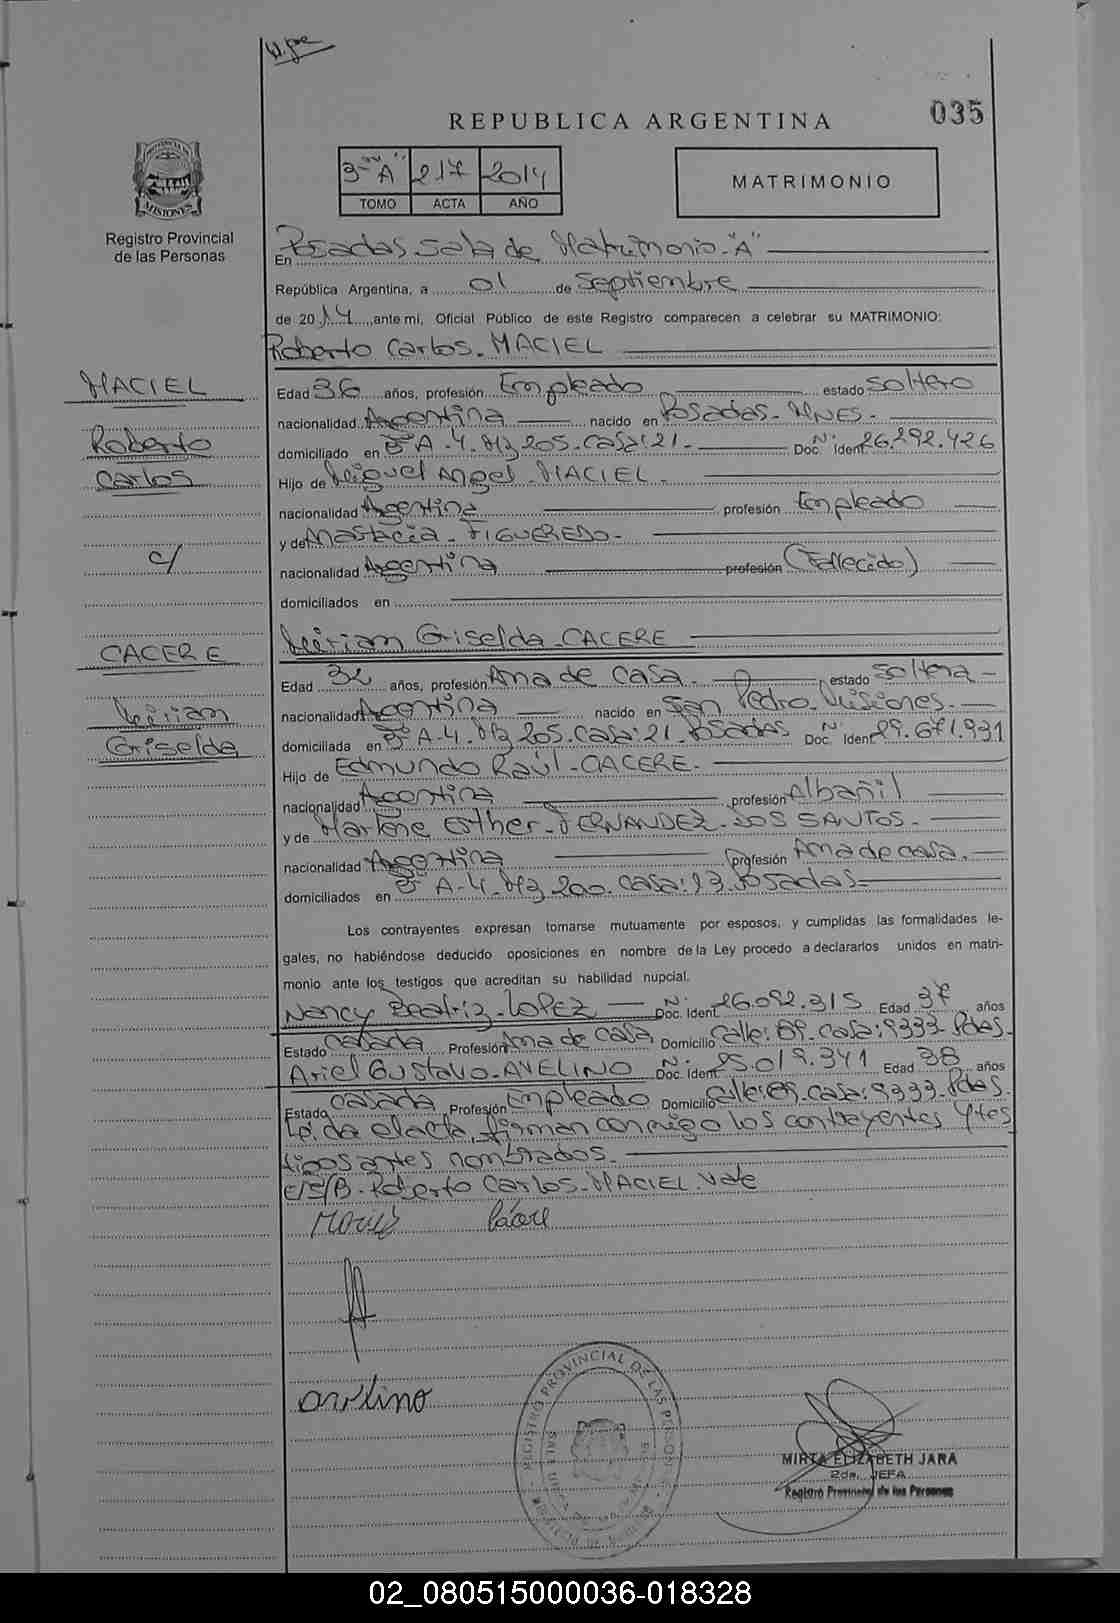 035
REPUBLICA ARGENTINA
3 "A" 217 2014
TOMO ACTA AÑO
MATRIMONIO
PROVINCIA DE
MISIONES
Registro Provincial
de las Personas
En Posadas Sala de Matrimonio "A"
República Argentina, a 01 de Septiembre
de 2014, ante mi, Oficial Público de este Registro comparecen a celebrar su MATRIMONIO:
Roberto Carlos. MACIEL
MACIEL
Roberto
Carlos
c/
CACERE
Miriam
Griselda
Edad 36 años, profesión Empleado estado Soltero
nacionalidad Argentina nacido en Posadas-MNES-
domiciliado en A-4. Mz 205. Casa: 21. Doc. Nº Ident. 26.292.426
Hijo de Miguel Angel. MACIEL.
nacionalidad Argentina profesión Empleado
y de Anastacia. FIGUEREDO-
nacionalidad Argentina profesión (Fallecido)
domiciliados en
Miriam Griselda. CACERE
Edad 32 años, profesión Ama de casa. estado Soltera
nacionalidad Argentina nacido en San Pedro. Misiones.
domiciliada en A-4. Mz 205. Casa: 21. Posadas Doc. Nº Ident. 29.671.931
Hijo de Edmundo Raúl. CACERE.
nacionalidad Argentina profesión Albañil
y de Marlene Esther. FERNANDEZ. DOS SANTOS.
nacionalidad Argentina profesión Ama de casa.
domiciliados en A-4. Mz 200. Casa: 23. Posadas
Los contrayentes expresan tomarse mutuamente por esposos, y cumplidas las formalidades le-
gales, no habiéndose deducido oposiciones en nombre de la Ley procedo a declararlos unidos en matri-
monio ante los testigos que acreditan su habilidad nupcial.
Nancy Beatriz. LOPEZ Doc. Nº Ident. 26.092.315 Edad 37 años
Estado Casada Profesión Ama de casa Domicilio Calle: 89. Casa: 9333. Pdas.
Ariel Gustavo. AVELINO Doc. Nº Ident. 25.019.341 Edad 38 años
Estado Casada Profesión Empleado Domicilio Calle: 89. Casa: 9333. Pdas.
Leída el acta, firman conmigo los contrayentes y tes
tigos antes nombrados.
E/S/B. Roberto Carlos. MACIEL. Vale
avelino
REGISTRO PROVINCIAL DE LAS PERSONAS
MIRTA ELIZABETH JARA
2da. JEFA
Registro Provincial de las Personas
02_080515000036-018328